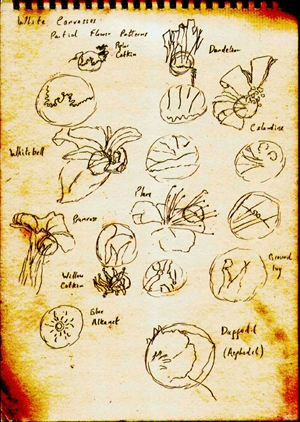 White Canvasses
Partial Flower Patterns
Polar
Catkin
Dandelion
Celandine
Whitebell
Plum
Primrose
Ground
Ivy
Willow
Catkin
Alkanet
Daffodil
(Asphodel)